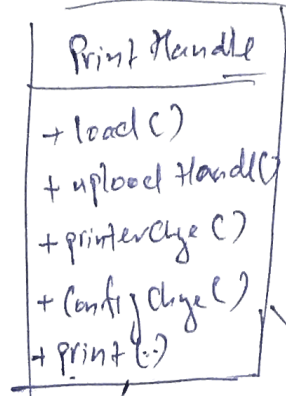 Print Handle
+ load()
+ upload Handl()
+ printerChge()
+ Config Chge()
+ print(..)